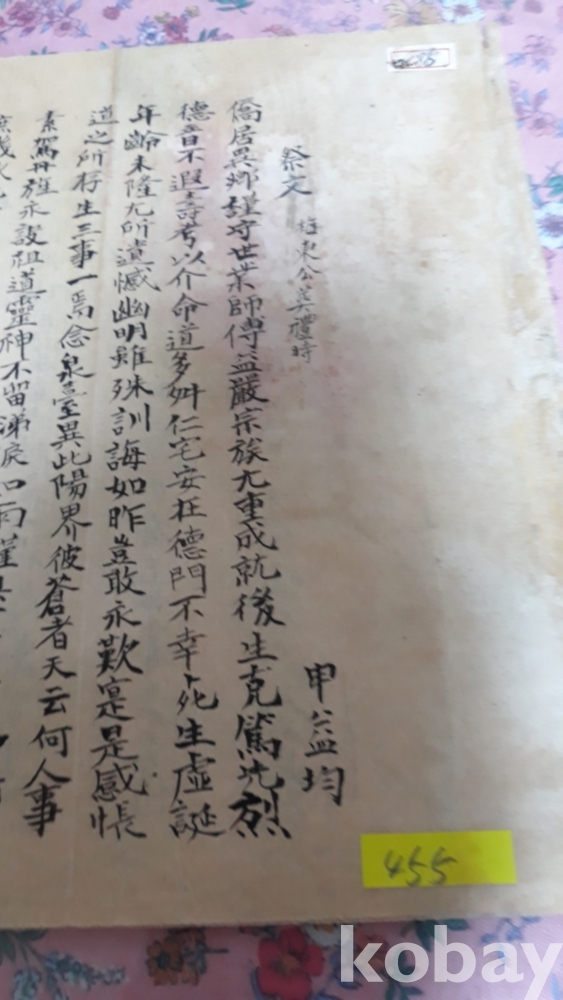 祭文
公葬禮時
申益均
僑居異鄉謹守世業師傅益嚴宗族尤重成就後生克篤先烈
德音不遐壽考以介命道多舛仁宅安在德門不幸死生虛誕
年齡未隆尤所遺憾幽明雖殊訓誨如昨豈敢永歎寔是感悵
道之所存生三事一焉念泉臺異此陽界彼蒼者天云何人事
素駕永設祖道靈神不留涕淚如雨謹
455
kobay